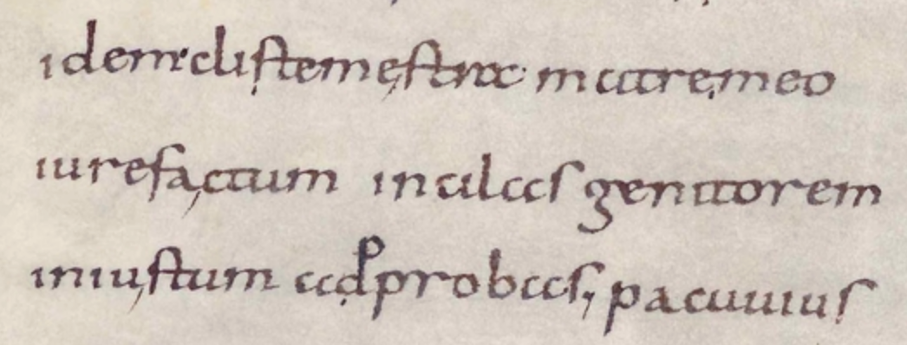 idem clistemestra matremeo
iurefactum incilas genitorem
iniustum adprobas, pacuuius